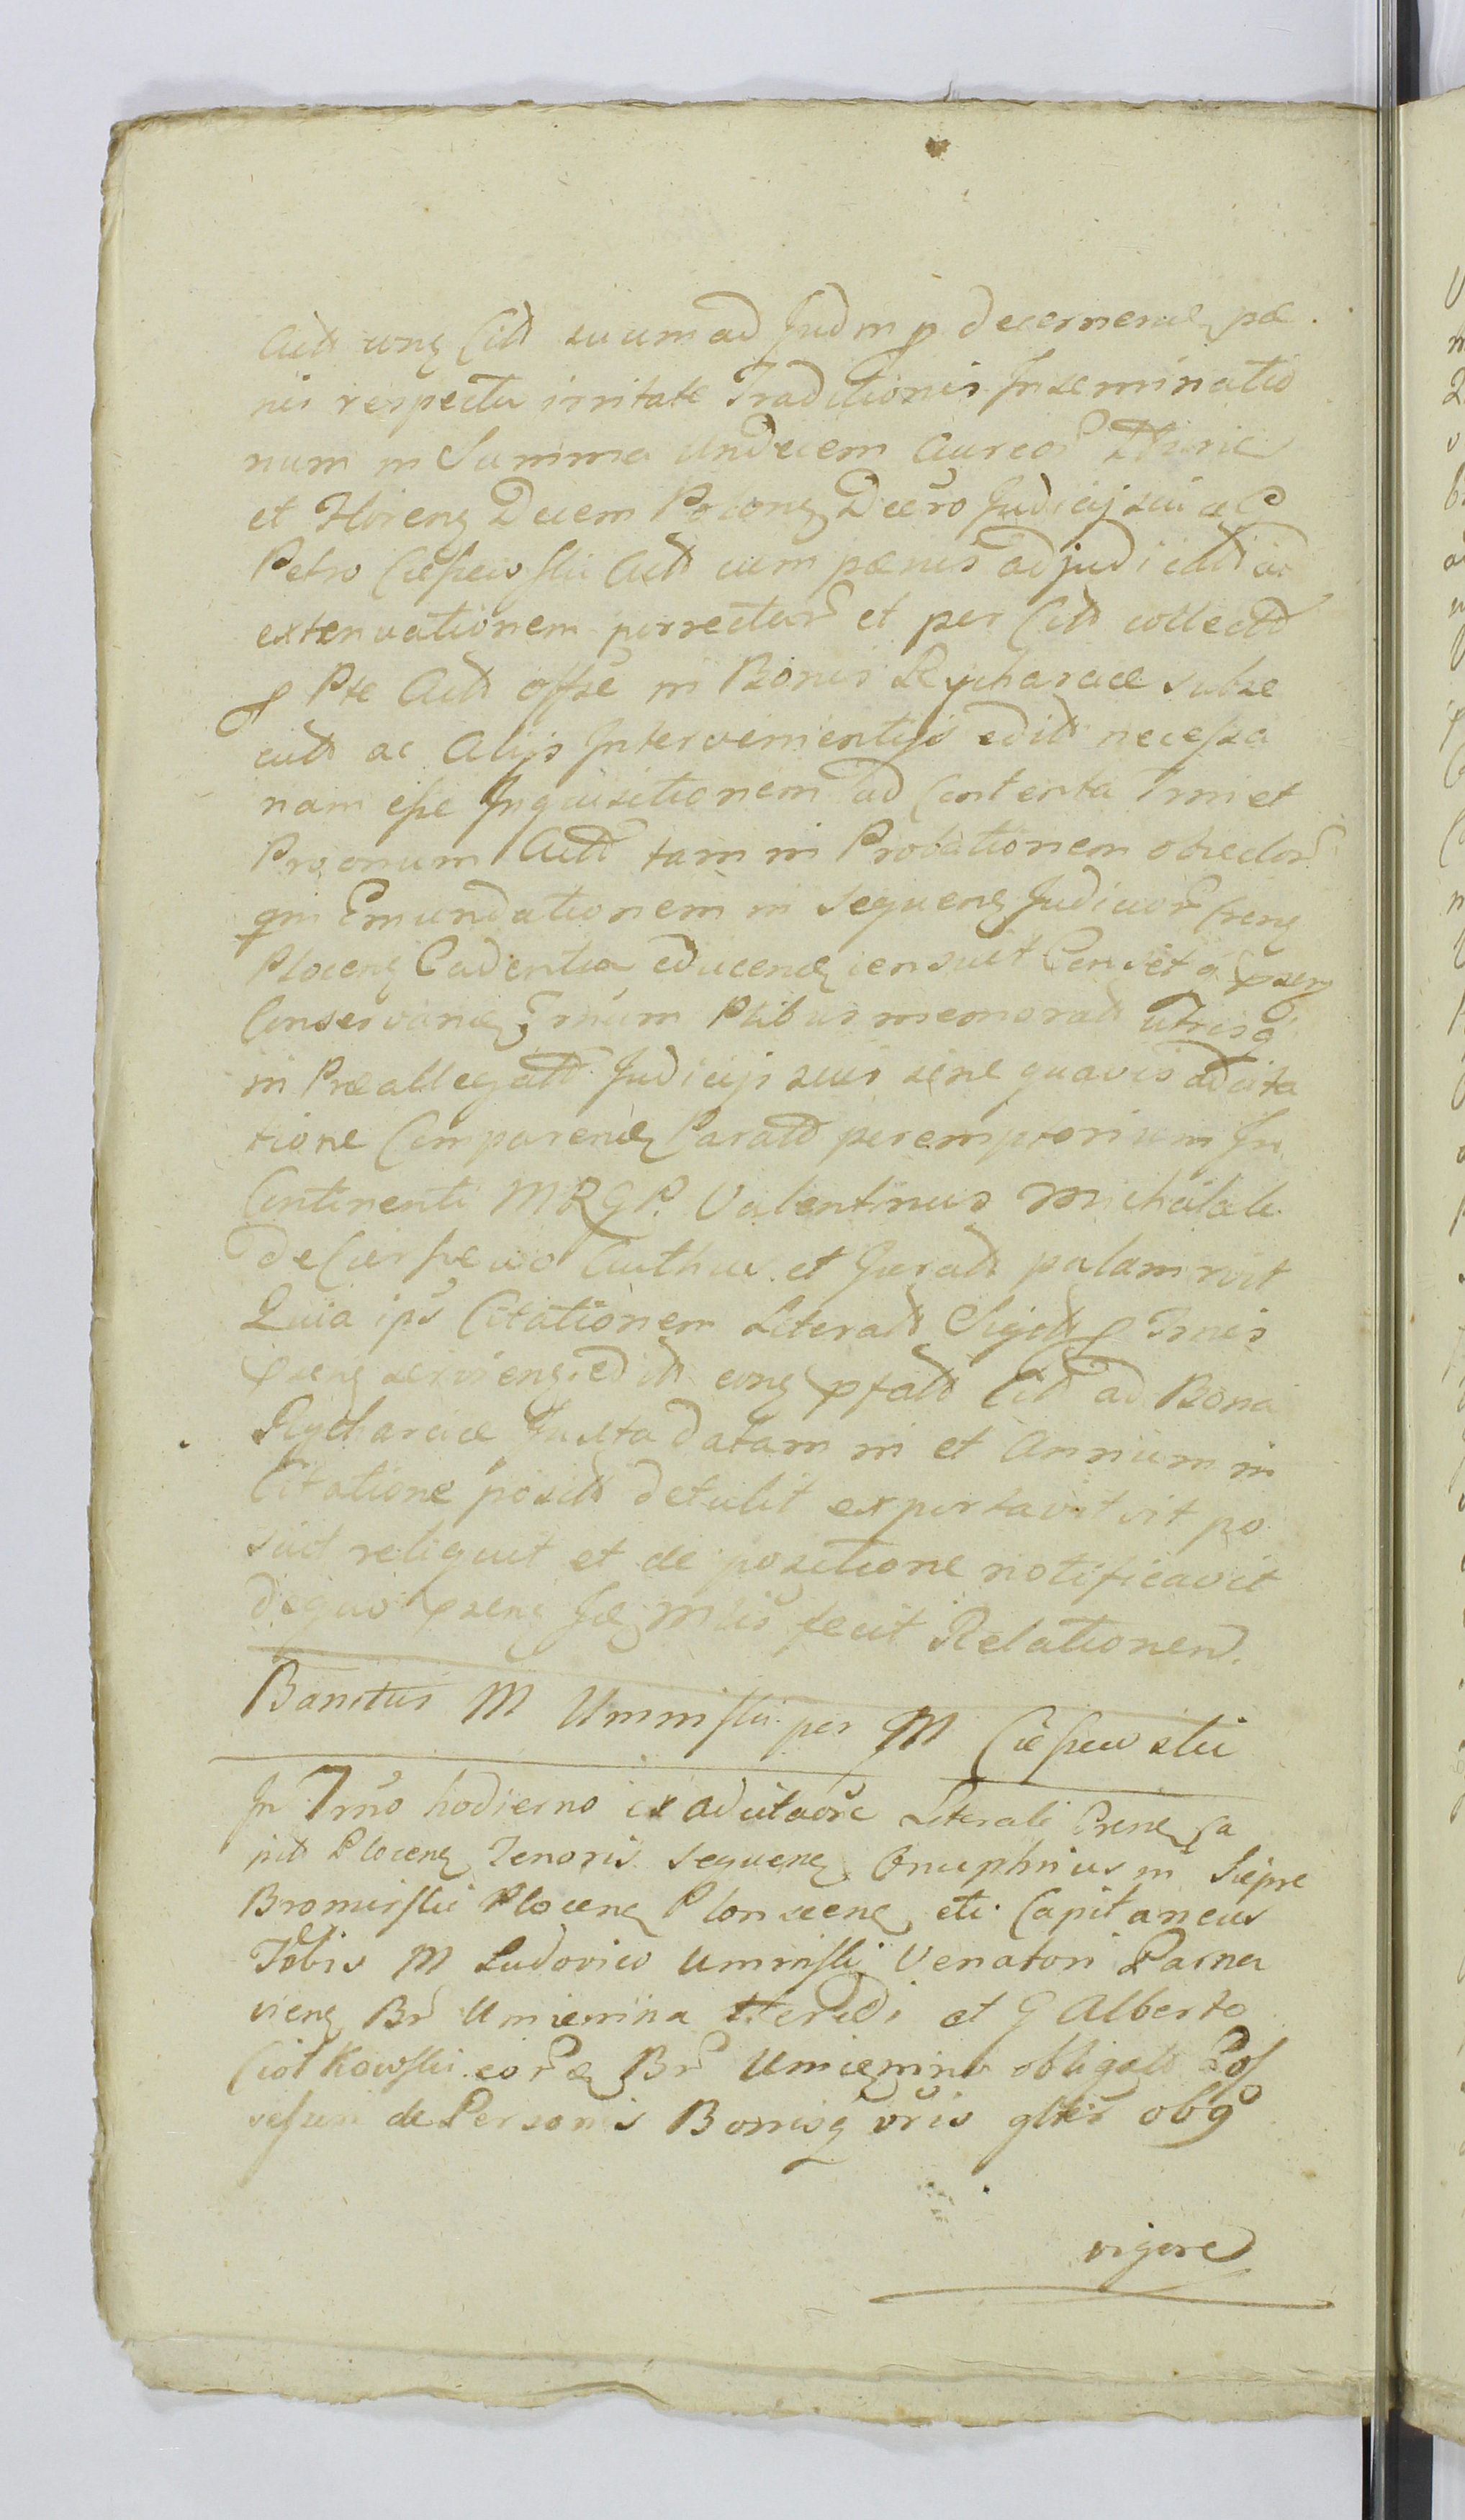 Actt cung Citt suum ad Judm p decernend pæ
nis respectu irritatæ Traditionis Inseminatio
num in Summa Undecem Aureor
et Floreng Decem Poloneg Decro Judicij sui a G
Petro Actt cum pænis adjudicatt ad
extenuationem porrectar et per Citt collectt
p Pte Actt offsæ in Bonis Rycharcice subse
cutt ac Alijs Intervenientijs editt necessa
riam esse Inquisitionem ad Contenta Trni et
Proonum Actt tam in Probationem objector
qm Emundationem in sequeng Judicior Creng
Ploceng Cadentia educend censuit Censet q
Conservand Trnum Ptibus memoratt utrisq
in Præallegatt Judicijs suis sine quavis adcita
tione Comparend Paratt peremptorium In
Continenti MRGP. Valentinus Michalak
de Authus et Juratt palam rvit
Quia ips Citationem Literatt Sigtt p Trnis
pseng servieng editt eung pfatt Citt ad Bona
Rycharcice Juxta datam in et Annum in
Citatione positt detulit exportavit vit po
suit reliquit et de positione notificavit
de quo pseng Je Mlis fecit Relationem.
Banitus M Uminski per M Ciesiewski
In Trno hodierno ex adcitaoe Literali Creng Ca
pitt Ploceng Tenoris sequeng Onuphrius in Siepre
Bromirski Ploceng Plonsceng etc Capitaneus
Vobis M Ludovico Uminski Venatori Parna
vieng Br Umienina Heredi et G Alberto
Ciotkowski eor Br Umienino obligatt Pos
sessori de Personis Bonisq vris glter obq
vigore